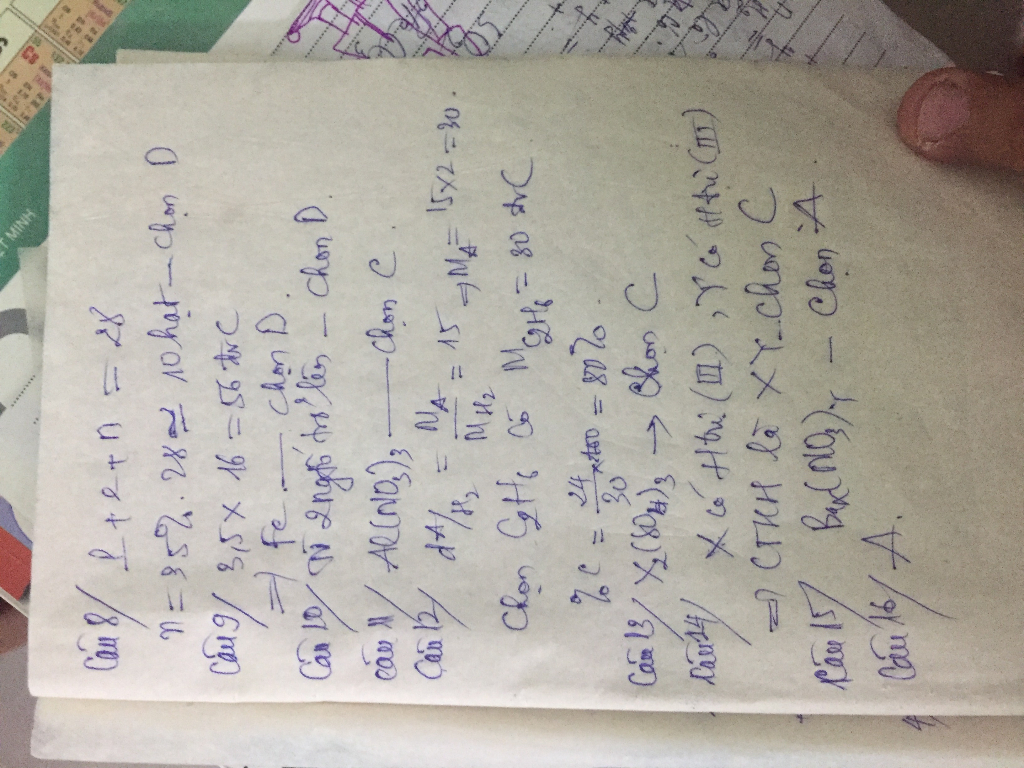 Câu 8/ p + e + n = 28
n = 35%. 28 ≃ 10 hạt — chọn D
Câu 9/ 3,5 x 16 = 56 đvC
=> Fe — chọn D.
Câu 10/ Từ 2 ngtố trở lên – chọn D.
Câu 11/ Al(NO3)3 — chọn C.
Câu 12/ dA/H2 = MA/MH2 = 15 => MA = 15x2 = 30.
Chọn C2H6 có MC2H6 = 30 đvC
%C = 24/30 x100 = 80%.
Câu 13/ X2(SO4)3 → chọn C
Câu 14/ X có Htrị (III), Y có Htrị (III)
=> CTHH là XY – chọn C
Câu 15/ Bax(NO3)y – chọn A
Câu 16/ A.
VIỆT MINH